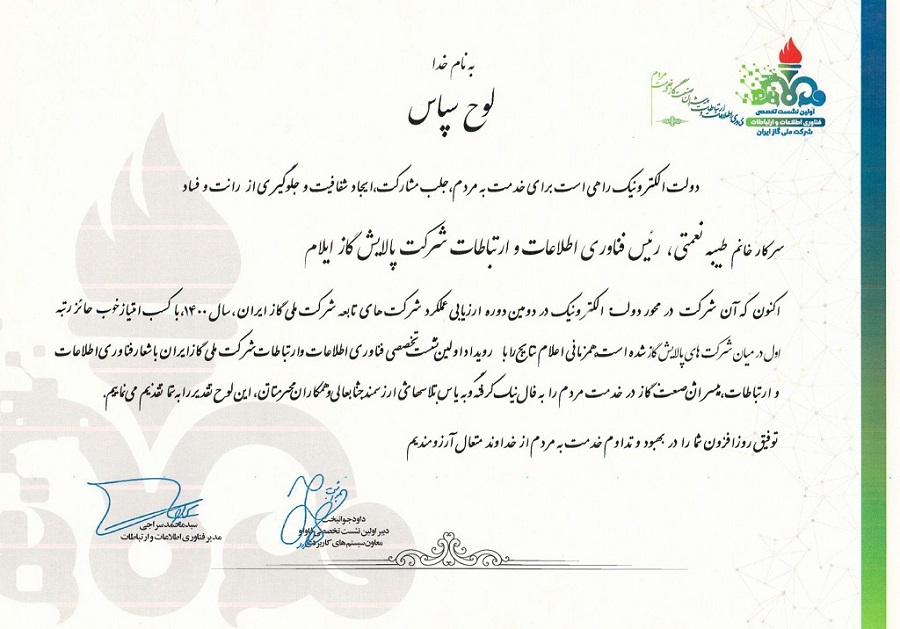 به نام خدا
لوح سپاس
فناوری اطلاعات و ارتباطات پیشران صنعت گاز در خدمت مردم
اولین نشست تخصصی
فناوری اطلاعات و ارتباطات
شرکت ملی گاز ایران
دولت الکترونیک راهی است برای خدمت به مردم، جلب مشارکت، ایجاد شفافیت و جلوگیری از رانت و فساد
سرکار خانم طیبه نعمتی، رئیس فناوری اطلاعات و ارتباطات شرکت پالایش گاز ایلام
اکنون که آن شرکت در محور دولت الکترونیک در دومین دوره ارزیابی عملکرد شرکت های تابعه شرکت ملی گاز ایران، سال ۱۴۰۰، با کسب امتیاز خوب حائز رتبه
اول در میان شرکت های پالایش گاز شده است همزمانی اعلام نتایج را با رویداد اولین نشست تخصصی فناوری اطلاعات و ارتباطات شرکت ملی گاز ایران با شعار فناوری اطلاعات
و ارتباطات، پیشران صنعت گاز در خدمت مردم را به فال نیک گرفته و به پاس تلاشهای ارزشمند جنابعالی و همکاران محترمتان، این لوح تقدیر را به شما تقدیم می نماییم.
توفیق روزافزون شما را در بهبود و تداوم خدمت به مردم از خداوند متعال آرزومندیم
داود جوانبخت
دبیر اولین نشست تخصصی فاوا و
معاون سیستم های کاربردی
سیدمحمد سراجی
مدیر فناوری اطلاعات و ارتباطات